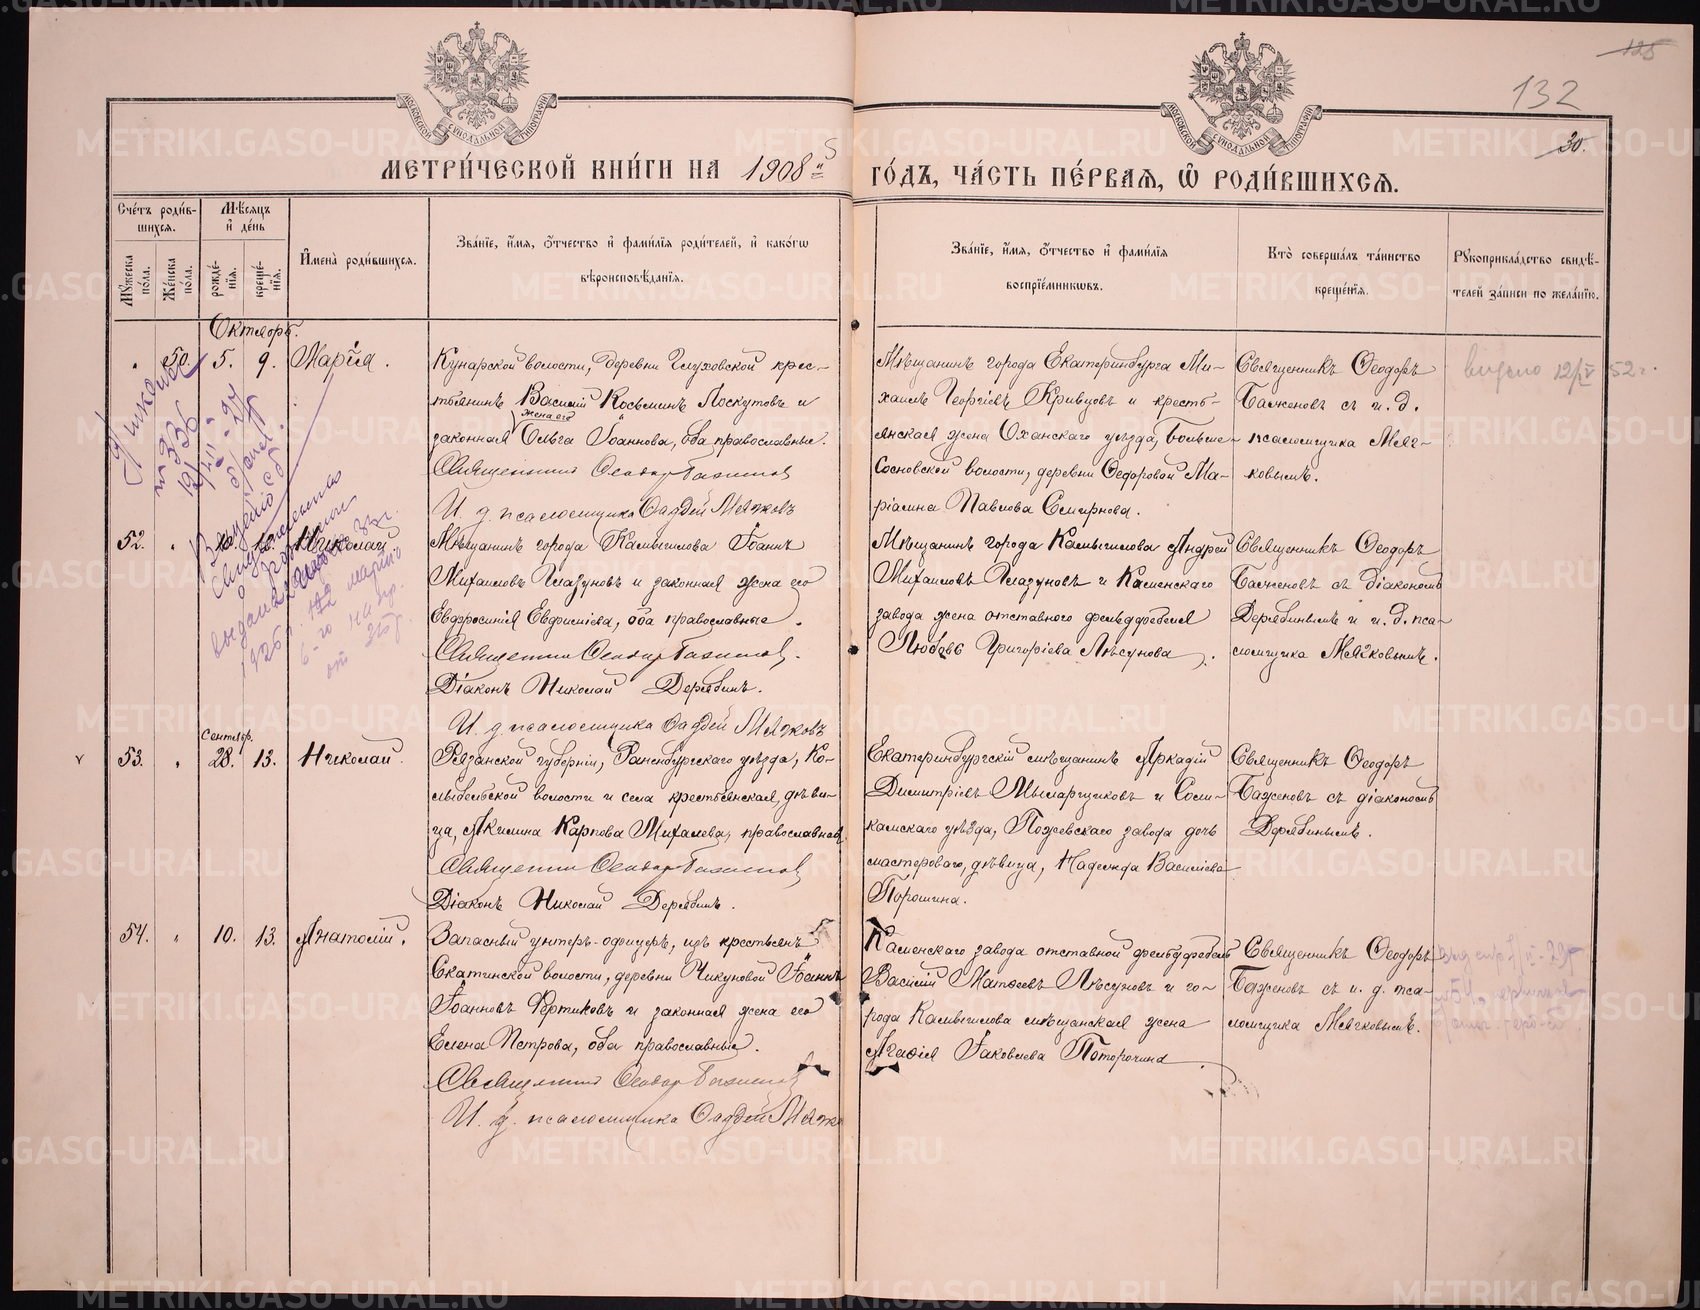 125
132
30.
МОСКОВСКОЙ СѴНОДАЛЬНОЙ ТИПОГРАФІИ
МОСКОВСКОЙ СѴНОДАЛЬНОЙ ТИПОГРАФІИ
МЕТРИ́ЧЕСКОЙ КНИ́ГИ НА 1908 й
ГО́ДЪ, ЧА́СТЬ ПЕ́РВАѦ, Ѡ РОДИ́ВШИХСѦ.
Сче́тъ роди́в-
шихсѧ.
Мꙋжеска по́ла.
Же́нска по́ла.
Мѣ́сѧцъ и де́нь
рожде́-нїѧ.
креще́-нїѧ.
И҆мена̀ роди́вшихсѧ.
Зва́нїе, и҆́мѧ, ѻ҆́тчество и҆ фами́лїѧ роди́телей, и҆ како́гѡ
вѣроисповѣ́данїѧ.
Зва́нїе, и҆́мѧ, ѻ҆́тчество и҆ фами́лїѧ
воспрїе́мникѡвъ.
Кто̀ соверша́лъ та́инство
креще́нїѧ.
Рꙋкоприкла́дство свидѣ́-
телей за́писи по жела́нїю.
Октябрь.
50. 5. 9. Марія.
Кунарской волости, деревни Глуховской крес-
тьянинъ Василій Косьминъ Лоскутовъ и
жена его
законная Ольга Іоаннова, оба православные.
Священникъ Ѳеодоръ Баженовъ
И. д. псаломщика Фаддей Мячковъ
Мѣщанинъ города Екатеринбурга Ми-
хаилъ Георгіевъ Кривцовъ и кресть-
янская жена Оханскаго уѣзда, Больше-
Сосновской волости, деревни Ѳедоровой Ма-
ріамна Павлова Смирнова.
Священникъ Ѳеодоръ
Баженовъ съ и. д.
псаломщика Мяч-
ковымъ.
видано 12/IV 52 г.
52. 10. Николай
Мѣщанинъ города Камышлова Іоаннъ
Михаиловъ Глазуновъ и законная жена его
Евфросинія Евфиміева, оба православные.
Священникъ Ѳеодоръ Баженовъ.
Діаконъ Николай Дерябинъ.
И. д. псаломщика Фаддей Мячковъ
Мѣщанинъ города Камышлова Андрей
Михаиловъ Глазуновъ и Каменскаго
завода жена отставного фельдфебеля
Любовь Григоріева Лѣсунова.
Священникъ Ѳеодоръ
Баженовъ съ діакономъ
Дерябинымъ и и. д. пса-
ломщика Мячковымъ.
Сентябр.
53. 28. 13. Николай.
Рязанской губерніи, Раненбургскаго уѣзда, Ко-
лыбельской волости и села крестьянская дѣви-
ца, Акилина Карпова Михалева, православная.
Священникъ Ѳеодоръ Баженовъ
Діаконъ Николай Дерябинъ.
Екатеринбургскій мѣщанинъ Аркадій
Димитріевъ Мыларщиковъ и Соли-
камскаго уѣзда, Пожевскаго завода дочь
мастерового, дѣвица, Надежда Василіева
Порошина.
Священникъ Ѳеодоръ
Баженовъ съ діакономъ
Дерябинымъ.
54. 10. 13. Анатолій.
Запасный унтеръ-офицеръ, изъ крестьянъ
Скатинской волости, деревни Чикуновой Іоаннъ
Іоанновъ Фертиковъ и законная жена его
Елена Петрова, оба православные.
Священникъ Ѳеодоръ Баженовъ
И. д. псаломщика Фаддей Мячко
Каменскаго завода отставной фельдфебель
Василій Матѳеевъ Лѣсуновъ и го-
рода Камышлова мѣщанская жена
Агаѳія Іаковлева Поторочина
Священникъ Ѳеодоръ
Баженовъ съ и. д. пса-
ломщика Мячковымъ.
METRIKI.GASO-URAL.RU